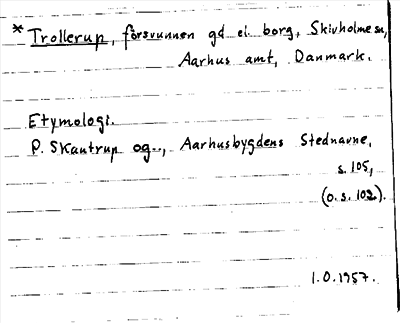 * Trollerup, försvunnen gd el. borg, Skivholme sn,
Aarhus amt, Danmark.
Etymologi.
P. Skautrup og.., Aarhusbygdens Stednavne,
s. 105,
(o. s. 102).
1.0.1957.